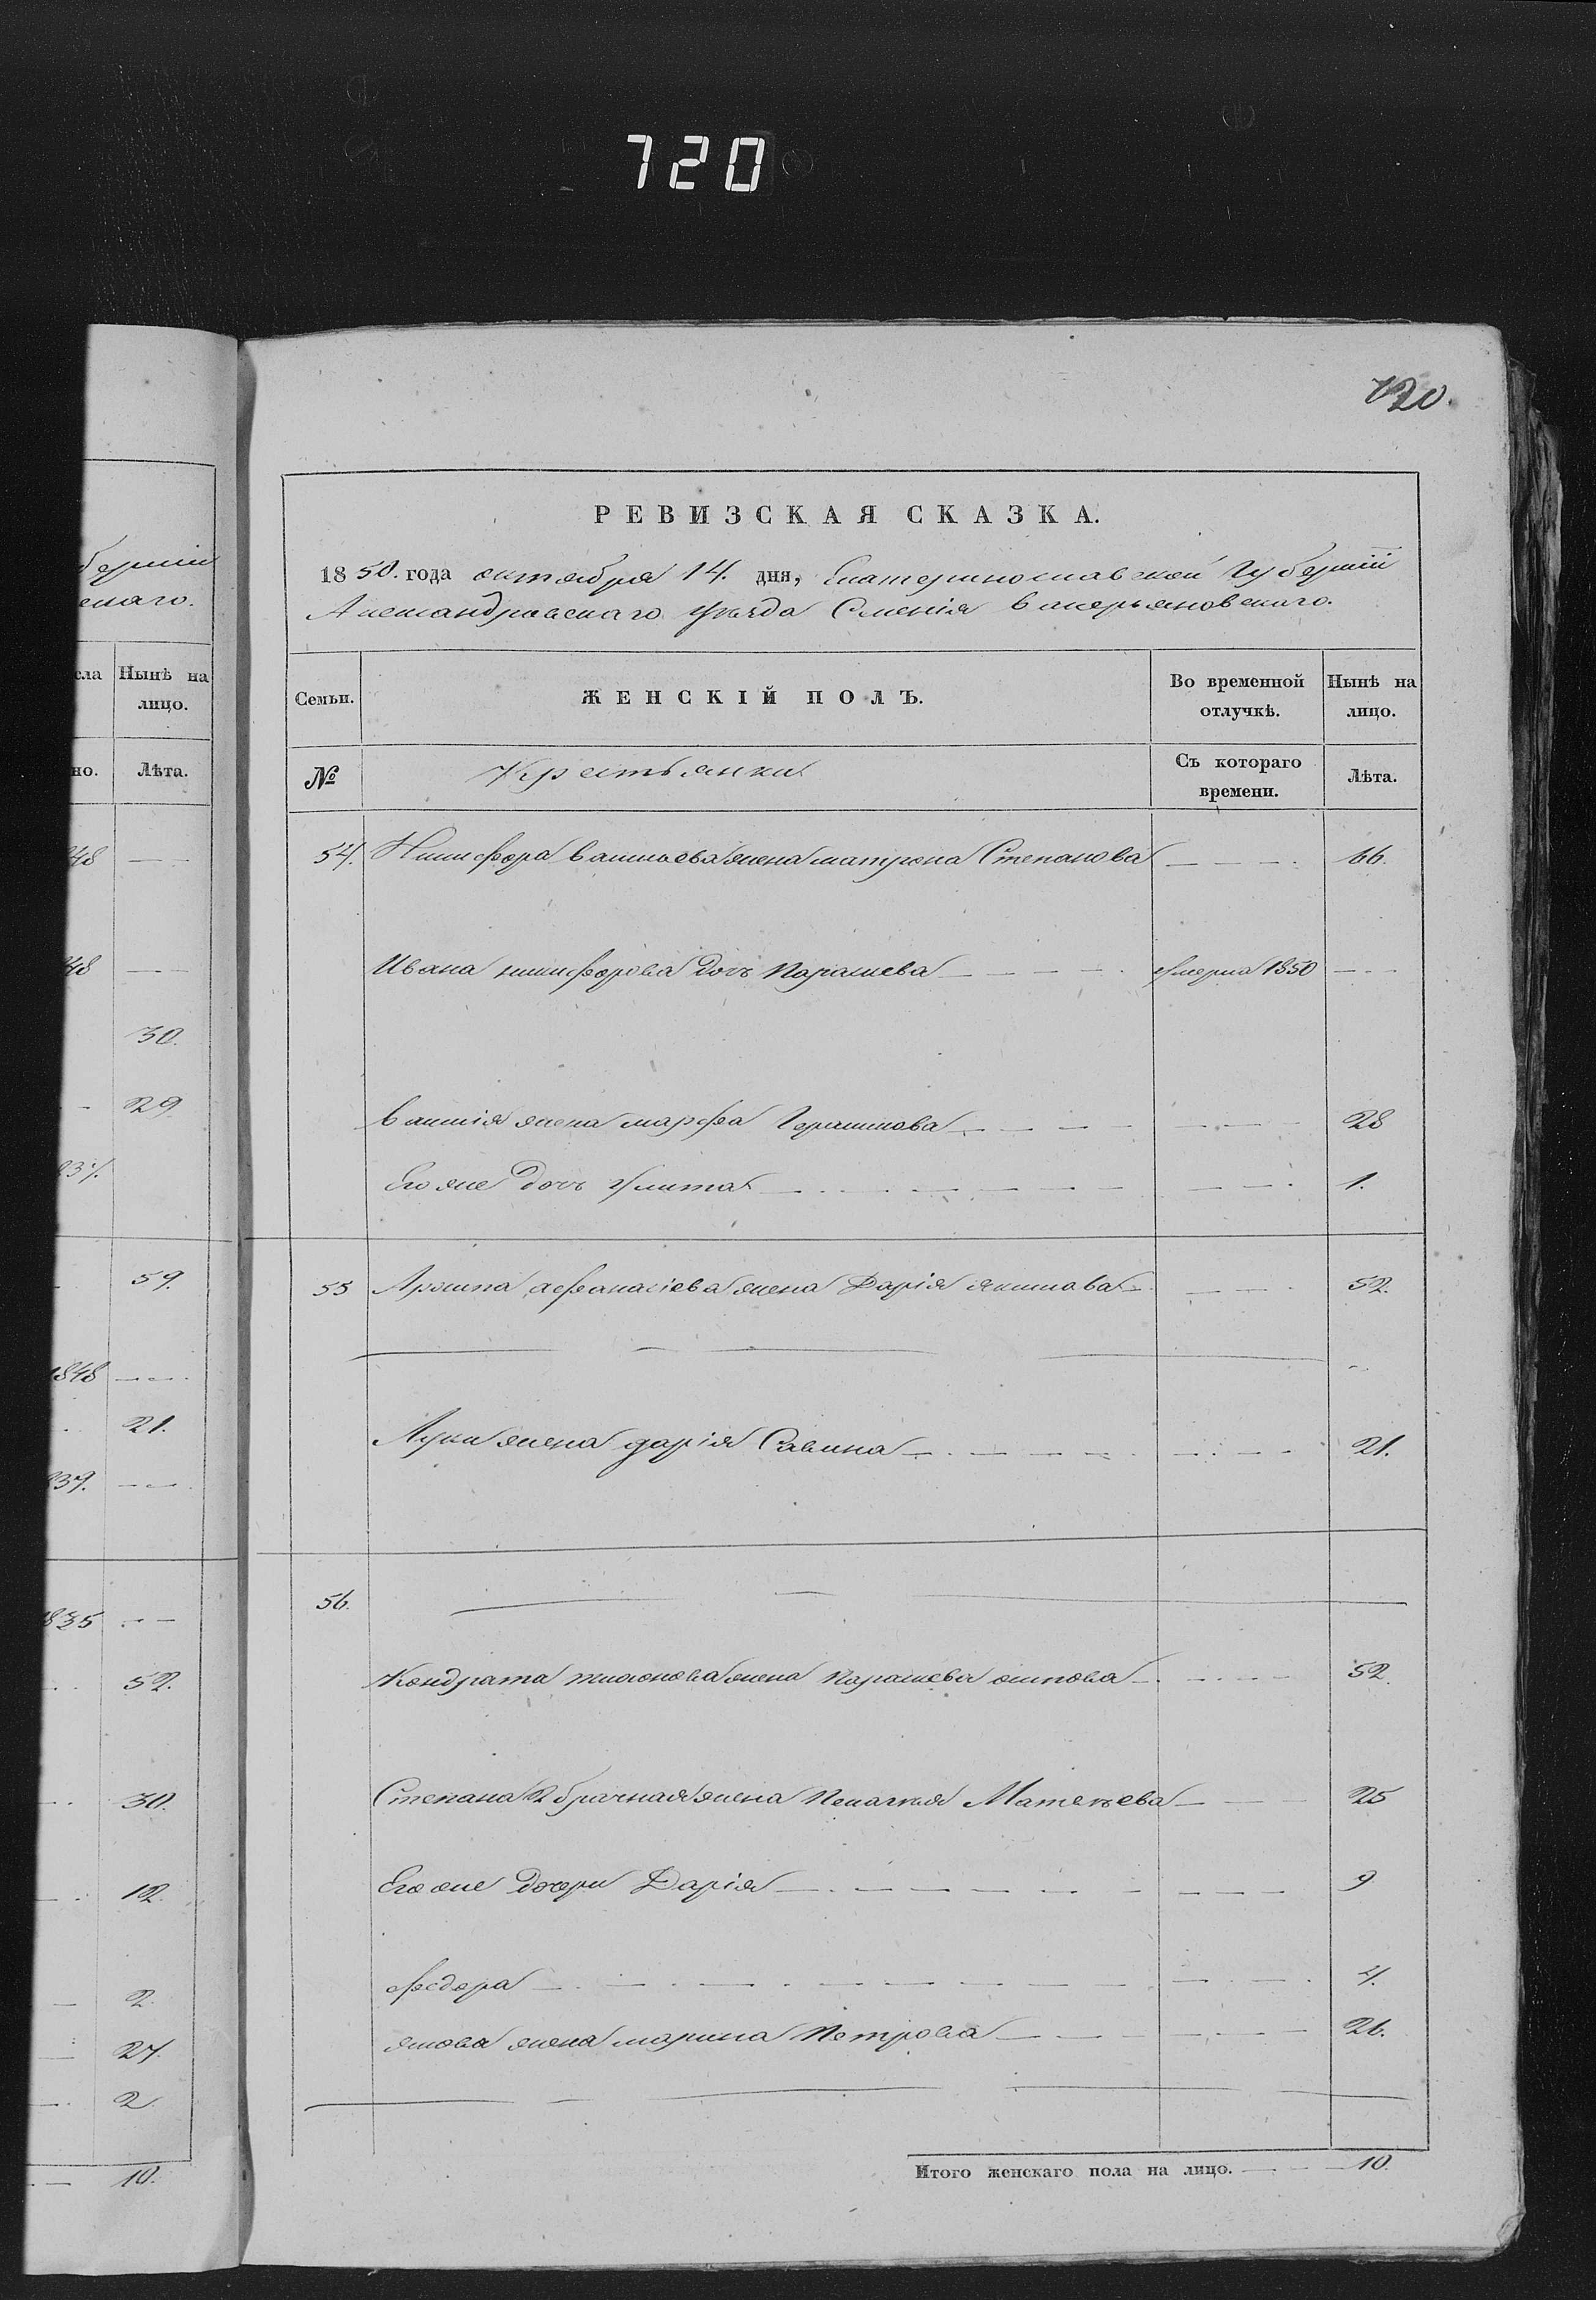 720
720.
РЕВИЗСКАЯ СКАЗКА.
1850. года октября 14. дня, Екатеринославской Губерніи
Александровскаго уѣзда Валерьяновскаго.
Семьи. ЖЕНСКІЙ ПОЛЪ. Во временной отлучкѣ. Нынѣ на лицо.
№ Крестьянки Съ котораго времени. Лѣта.
54. Никифора Васильева жена матрона Степанова — — — 66.
Ивана никифорова дочь Параскева — — — умерла 1850 — —
Василія жена марфа Герасимова — — — 28
Его же дочь Улита — — — 1.
55 Архипа афанасіева жена Дарія якимова — — — 52.
Луки жена дарія Савина — — — 21.
56.
Кондрата жена Параскева осипова — — — 52.
Степана 2 брачная жена Пелагия Матвѣева — — — 25
Его же дочери Дарія — — — 9
федора — — — 4.
якова жена марина Петрова — — — 26.
Итого женскаго пола на лицо. — — — 10.
берніи
скаго.
сла Нынѣ на лицо.
но. Лѣта.
48 — —
48 — —
30.
29
837.
59.
1848 — —
21.
839. — —
835 — —
52.
30.
12.
2.
27.
2.
10.